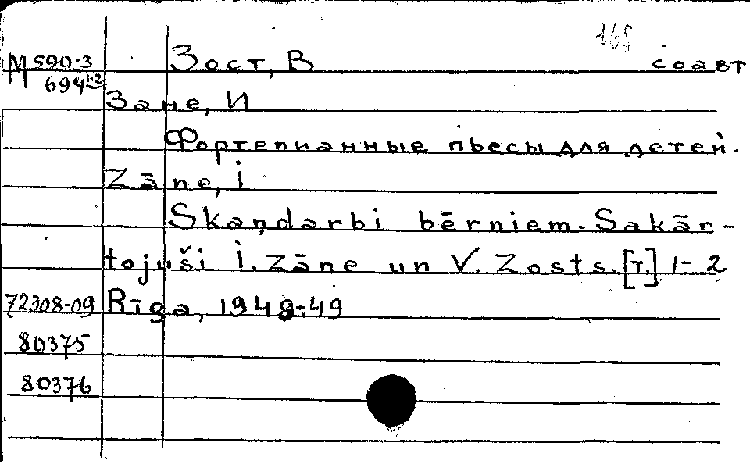 169
M 590-3 Зост, В соавт
694
Зане, И
Фортепианные пьесы для детей.
Zāne, I
Skaņdarbi bērniem. Sakār-
tojuši I. Zāne un V. Zosts. [т.] 1-2
72308-09 Rīga, 1948-49
80375
80376